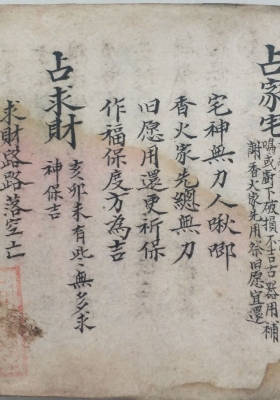 占家宅
鳴或廚灶破損不吉古器用補
謝香火家先用祭旧愿宜還
宅神無刀人啾唧
香火家先總無刀
旧愿用還更祈保
作福保度方為吉
占求財
亥卯未有些〻無多求
神保吉
求財路路落空亡